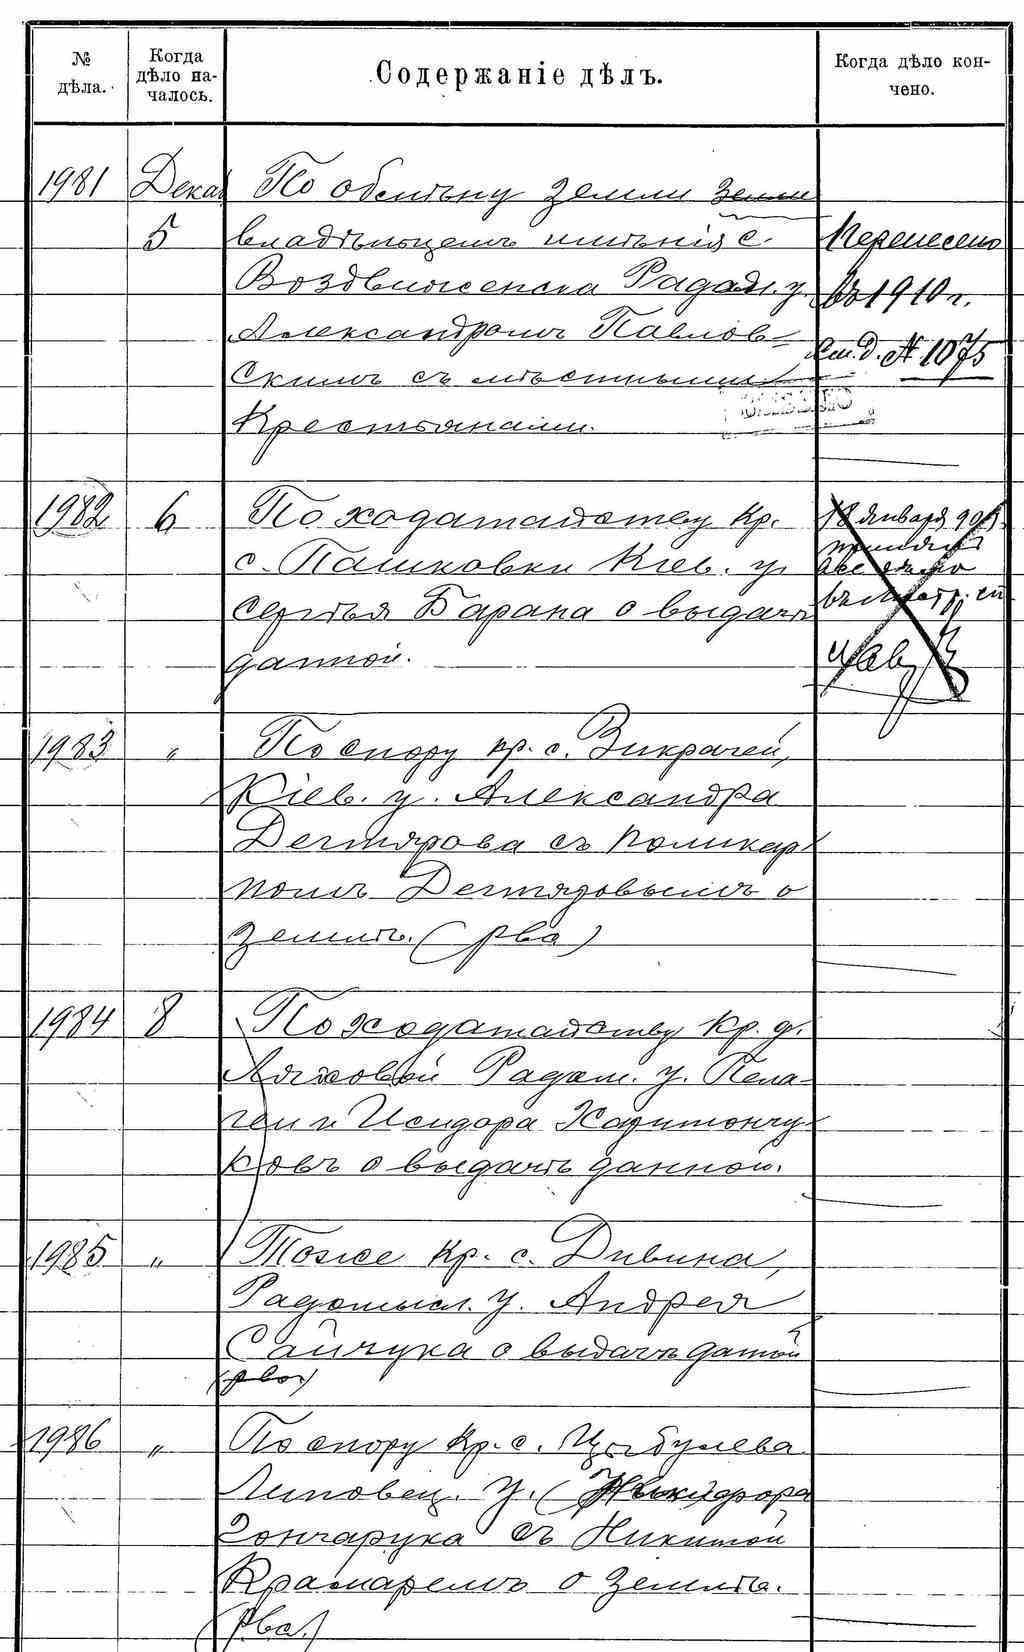 № дѣла.
Когда дѣло началось.
Содержаніе дѣлъ.
Когда дѣло кончено.
1981 Декаб По обмѣну земли земли
5 владѣльцемъ имѣнія с. Перенесено
Воздвиженска Радом. у. въ 1910 г.
Александромъ Павлов- см. д. № 1075
скимъ съ мѣстными
Крестьянами.
1982 6 По ходатайству Кр. 18 января 909
с. Пашковки Кіев. у.
Сергѣя Барана о выдачѣ
данной.
1983 „ По спору кр. с. Викрачей,
Кіев. у. Александра
Дегтярова съ Поликар-
помъ Дегтяровымъ о
землѣ. (рва)
1984 8 По ходатайству Кр. д.
Ляховой Радом. у. Пела-
геи и Исидора Харитончу-
ковъ о выдачѣ данной.
1985 „ Тоже Кр. с. Дивина,
Радомысл. у. Андрея
Сайчука о выдачѣ данной
(рва)
1986 „ По спору Кр. с. Цыбулева
Липовец. у. ( Никифора
Гончарука съ Никитой
Крамаремъ о землѣ.
(рва.)